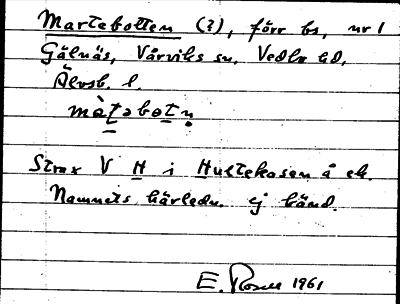 Martabotten (?), förr bs, nr 1
Gälnäs, Vårviks sn, Vedbo hd,
Älvsb. l.
màtabotn
Strax V H i Hultekasen å ek.
Namnets härledn. ej känd.
E. Rosell 1961